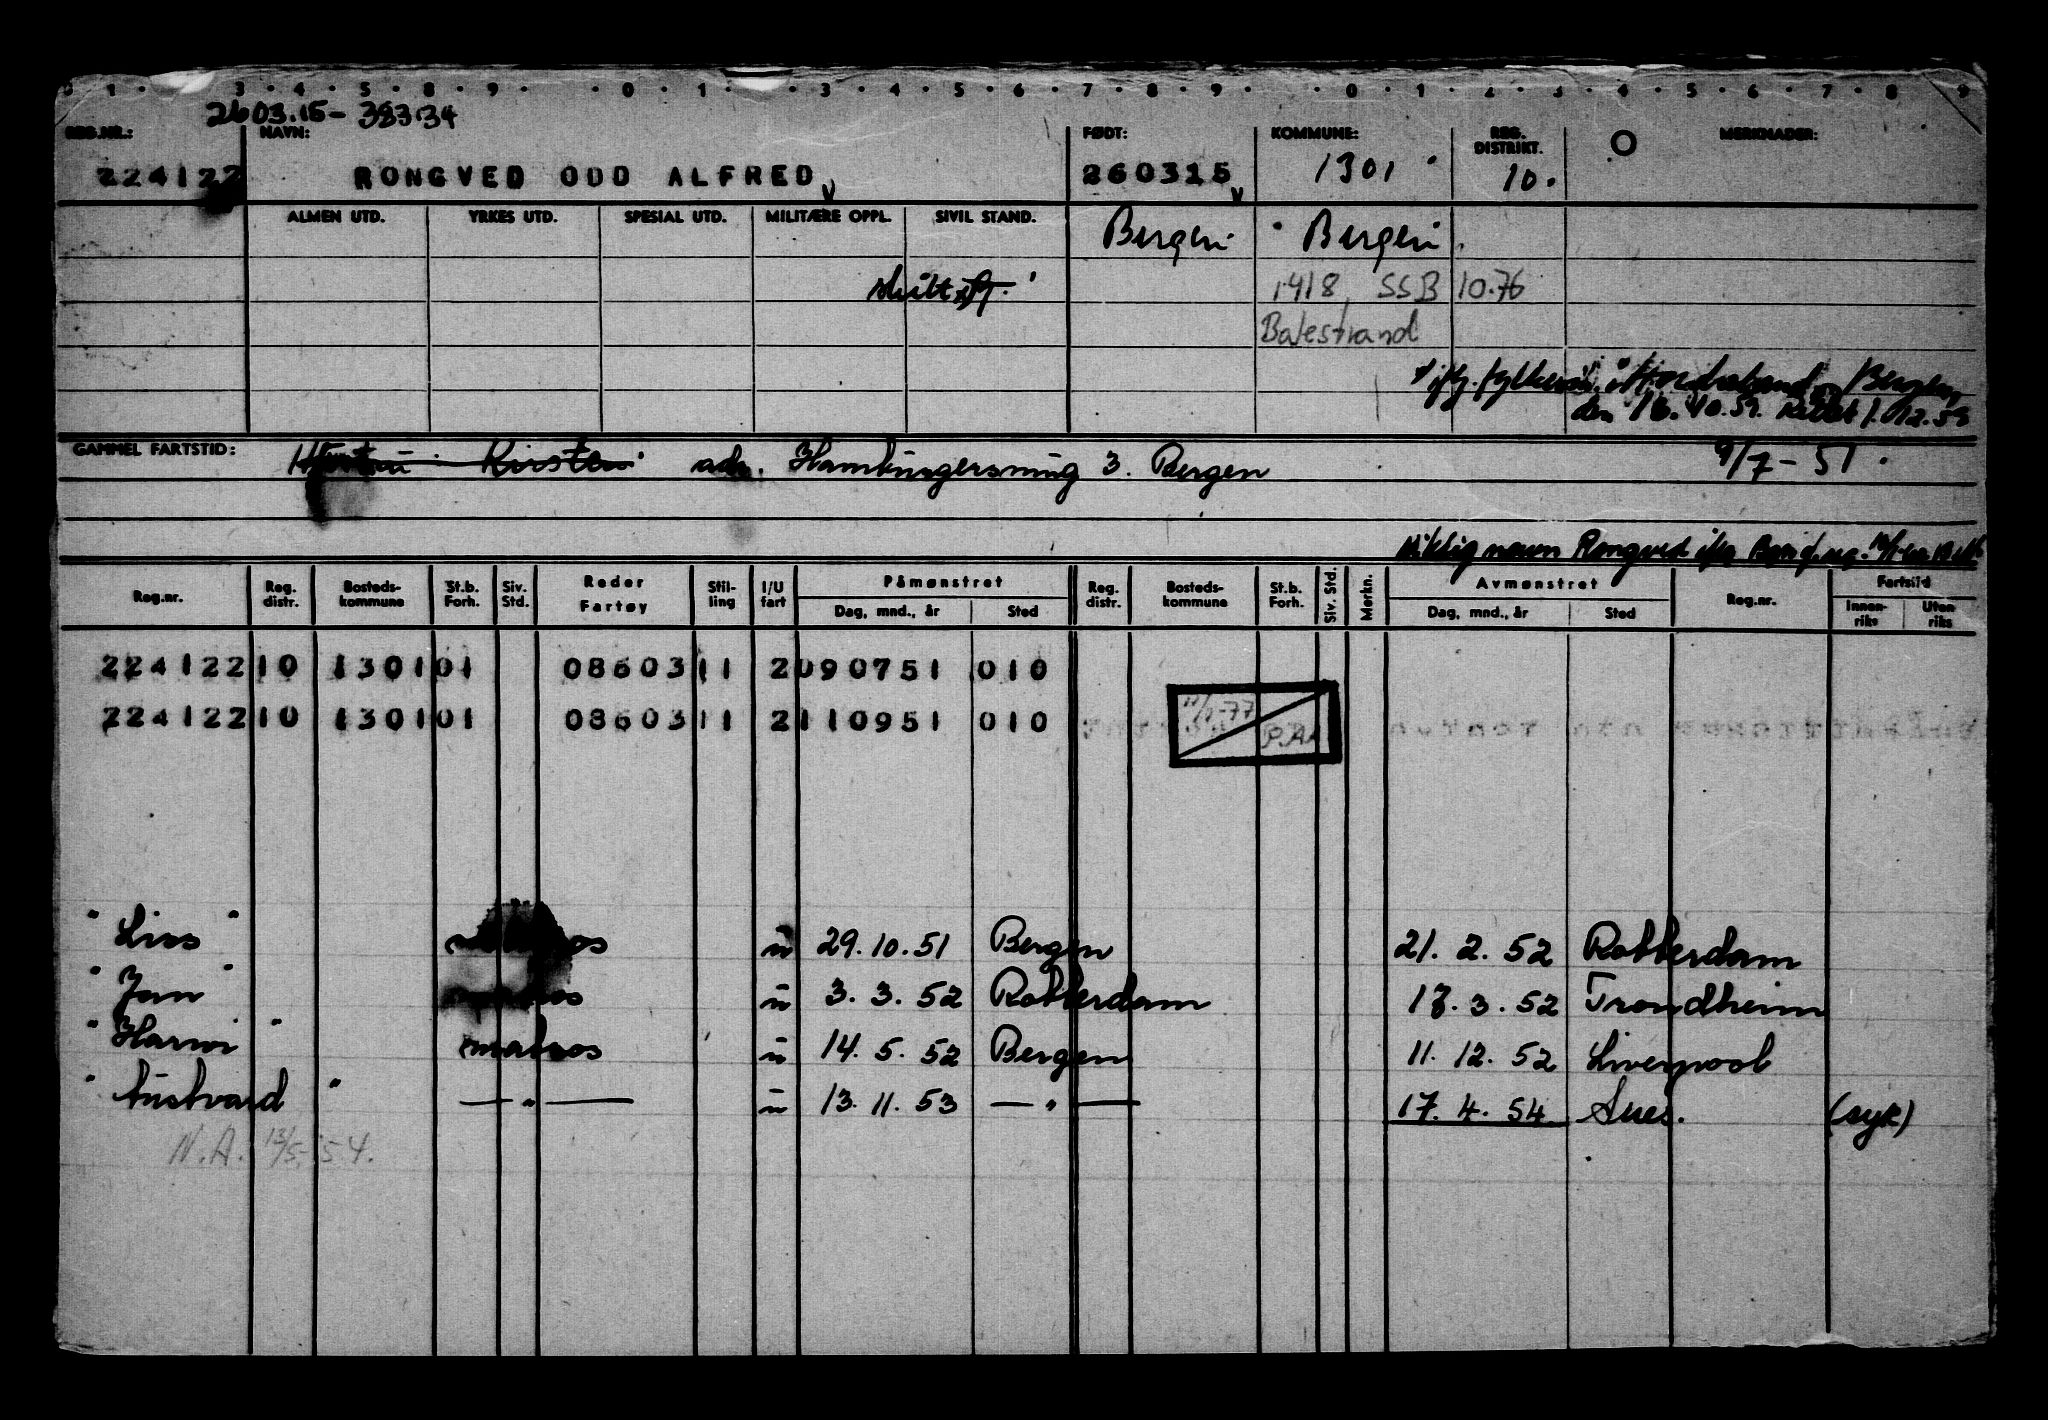 260315-38334
REG.NR.: NAVN: FØDT: KOMMUNE: REG. DISTRIKT. MERKNADER:
224122 RONGVED ODD ALFRED 260315 1301 10.
ALMEN UTD. YRKES UTD. SPESIAL UTD. MILITÆRE OPPL. SIVIL STAND.
Bergen Bergen
1418, SSB 10.76
Balestrand
Bergen,
den 16.10.59.
GAMMEL FARTSTID: Hustru: Kirsten adr. Hamburgersmug 3. Bergen 9/7-51.
Riktig navn Rongved
Reg.nr. Reg. distr. Bosteds-kommune St.b. Forh. Siv. Std. Reder Fartøy Stil-ling I/U fart Påmønstret Dag, mnd., år Sted Reg. distr. Bosteds-kommune St.b. Forh. Siv. Std. Merkn. Avmønstret Dag, mnd., år Sted Reg.nr. Fartstid Innen-riks Uten riks
224122 10 1301 01 08603 11 2 090751 010
224122 10 1301 01 08603 11 2 110951 010
-77
" Liss " u 29.10.51 Bergen 21. 2. 52 Rotterdam
" Jan " matros u 3. 3. 52 Rotterdam 17. 3. 52 Trondheim
" Harwi " matros u 14. 5. 52 Bergen 11. 12. 52 Liverpool
" Austvard " — " — u 13. 11. 53 — " — 17. 4. 54 Sues. (syk)
N.A. 13/5-54.